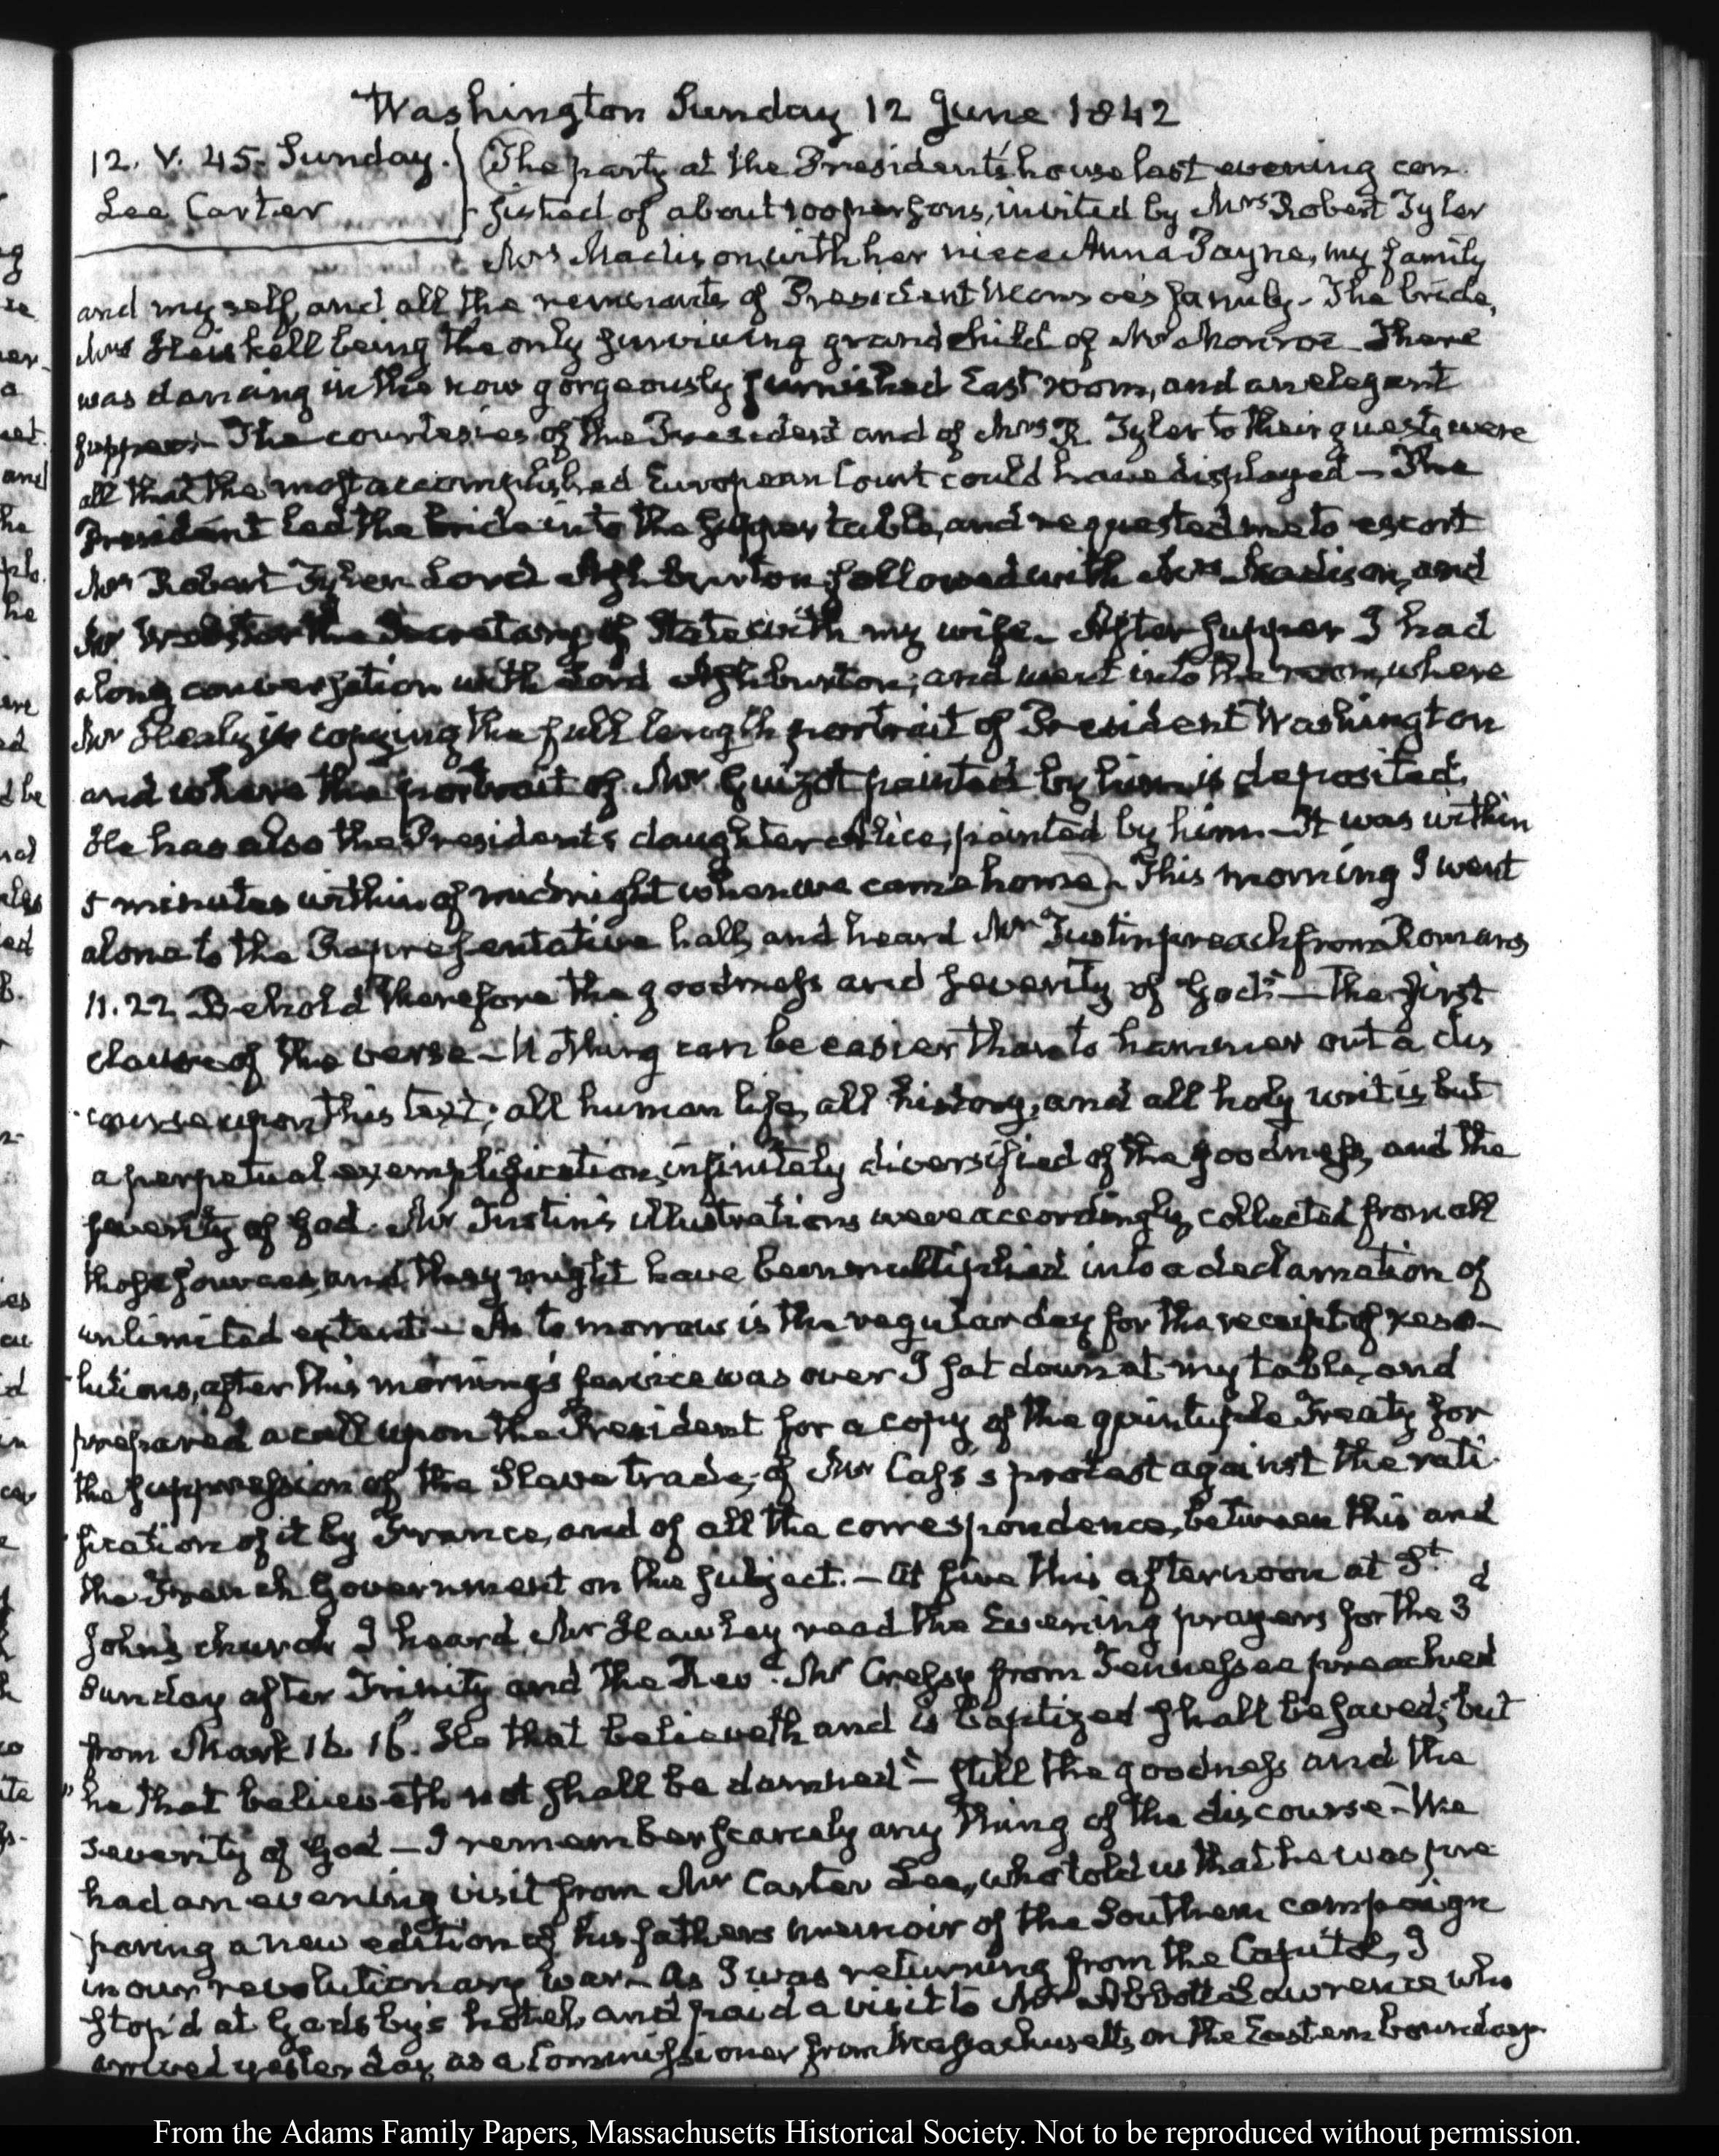 Washington Sunday 12 June 1842
12. V. 45. Sunday.
Lee Carter
The party at the President's house last evening con-
sisted of about 100 persons, invited by Mrs Robert Tyler
Mrs Madison, with her niece Anna Payne, my family
and myself, and all the remnants of President Monroe's family. The bride,
Mrs Heiskell being the only surviving grandchild of Mr Monroe. There
was dancing in the now gorgeously furnished East room, and an elegant
supper. The courtesies of the President and of Mrs R. Tyler to their guests were
all that the most accomplished European Court could have displayed — The
President led the bride into the supper table, and requested me to escort
Mrs Robert Tyler. Lord Ashburton followed with Mrs Madison, and
Mr Webster the Secretary of State with my wife. After supper I had
a long conversation with Lord Ashburton; and went into the room, where
Mr Healy is copying the full length portrait of President Washington
and where the portrait of Mr Guizot painted by him is deposited.
He has also the President's daughter Alice, painted by him — It was within
5 minutes within of midnight when we came home). This morning I went
alone to the Representative hall, and heard Mr Tustin preach from Romans
11.22 Behold therefore the goodness and severity of God" — the first
clause of the verse — Nothing can be easier than to hammer out a dis
course upon this text; all human life, all history, and all holy writ is but
a perpetual exemplification, infinitely diversified of the goodness, and the
severity of God. Mr Tustin's illustrations were accordingly collected from all
those sources, and they might have been multiplied into a declamation of
unlimited extent — As to morrow is the regular day for the receipt of reso-
lutions, after this morning's service was over I sat down at my table, and
prepared a call upon the President for a copy of the quintuple Treaty for
the suppression of the Slave trade; of Mr Cass's protest against the rati-
fication of it by France, and of all the correspondence, between this and
the French Government on the subject. — At five this afternoon at St
John's church I heard Mr Hawley read the Evening prayers for the 3d
Sunday after Trinity and the Revd Mr Cressy from Tennessee preached
from Mark 16. 16. He that believeth and is baptized shall be saved; but
"he that believeth not shall be damned" — still the goodness and the
severity of God — I remember scarcely any thing of the discourse — We
had an evening visit from Mr Carter Lee, who told us that he was pre
paring a new edition of his father's memoir of the Southern campaign
in our revolutionary war — As I was returning from the Capitol, I
stop'd at Gadsby's hotel, and paid a visit to Mr Abbott Lawrence who
arrived yesterday, as a Commissioner from Massachusetts on the Eastern boundary
From the Adams Family Papers, Massachusetts Historical Society. Not to be reproduced without permission.